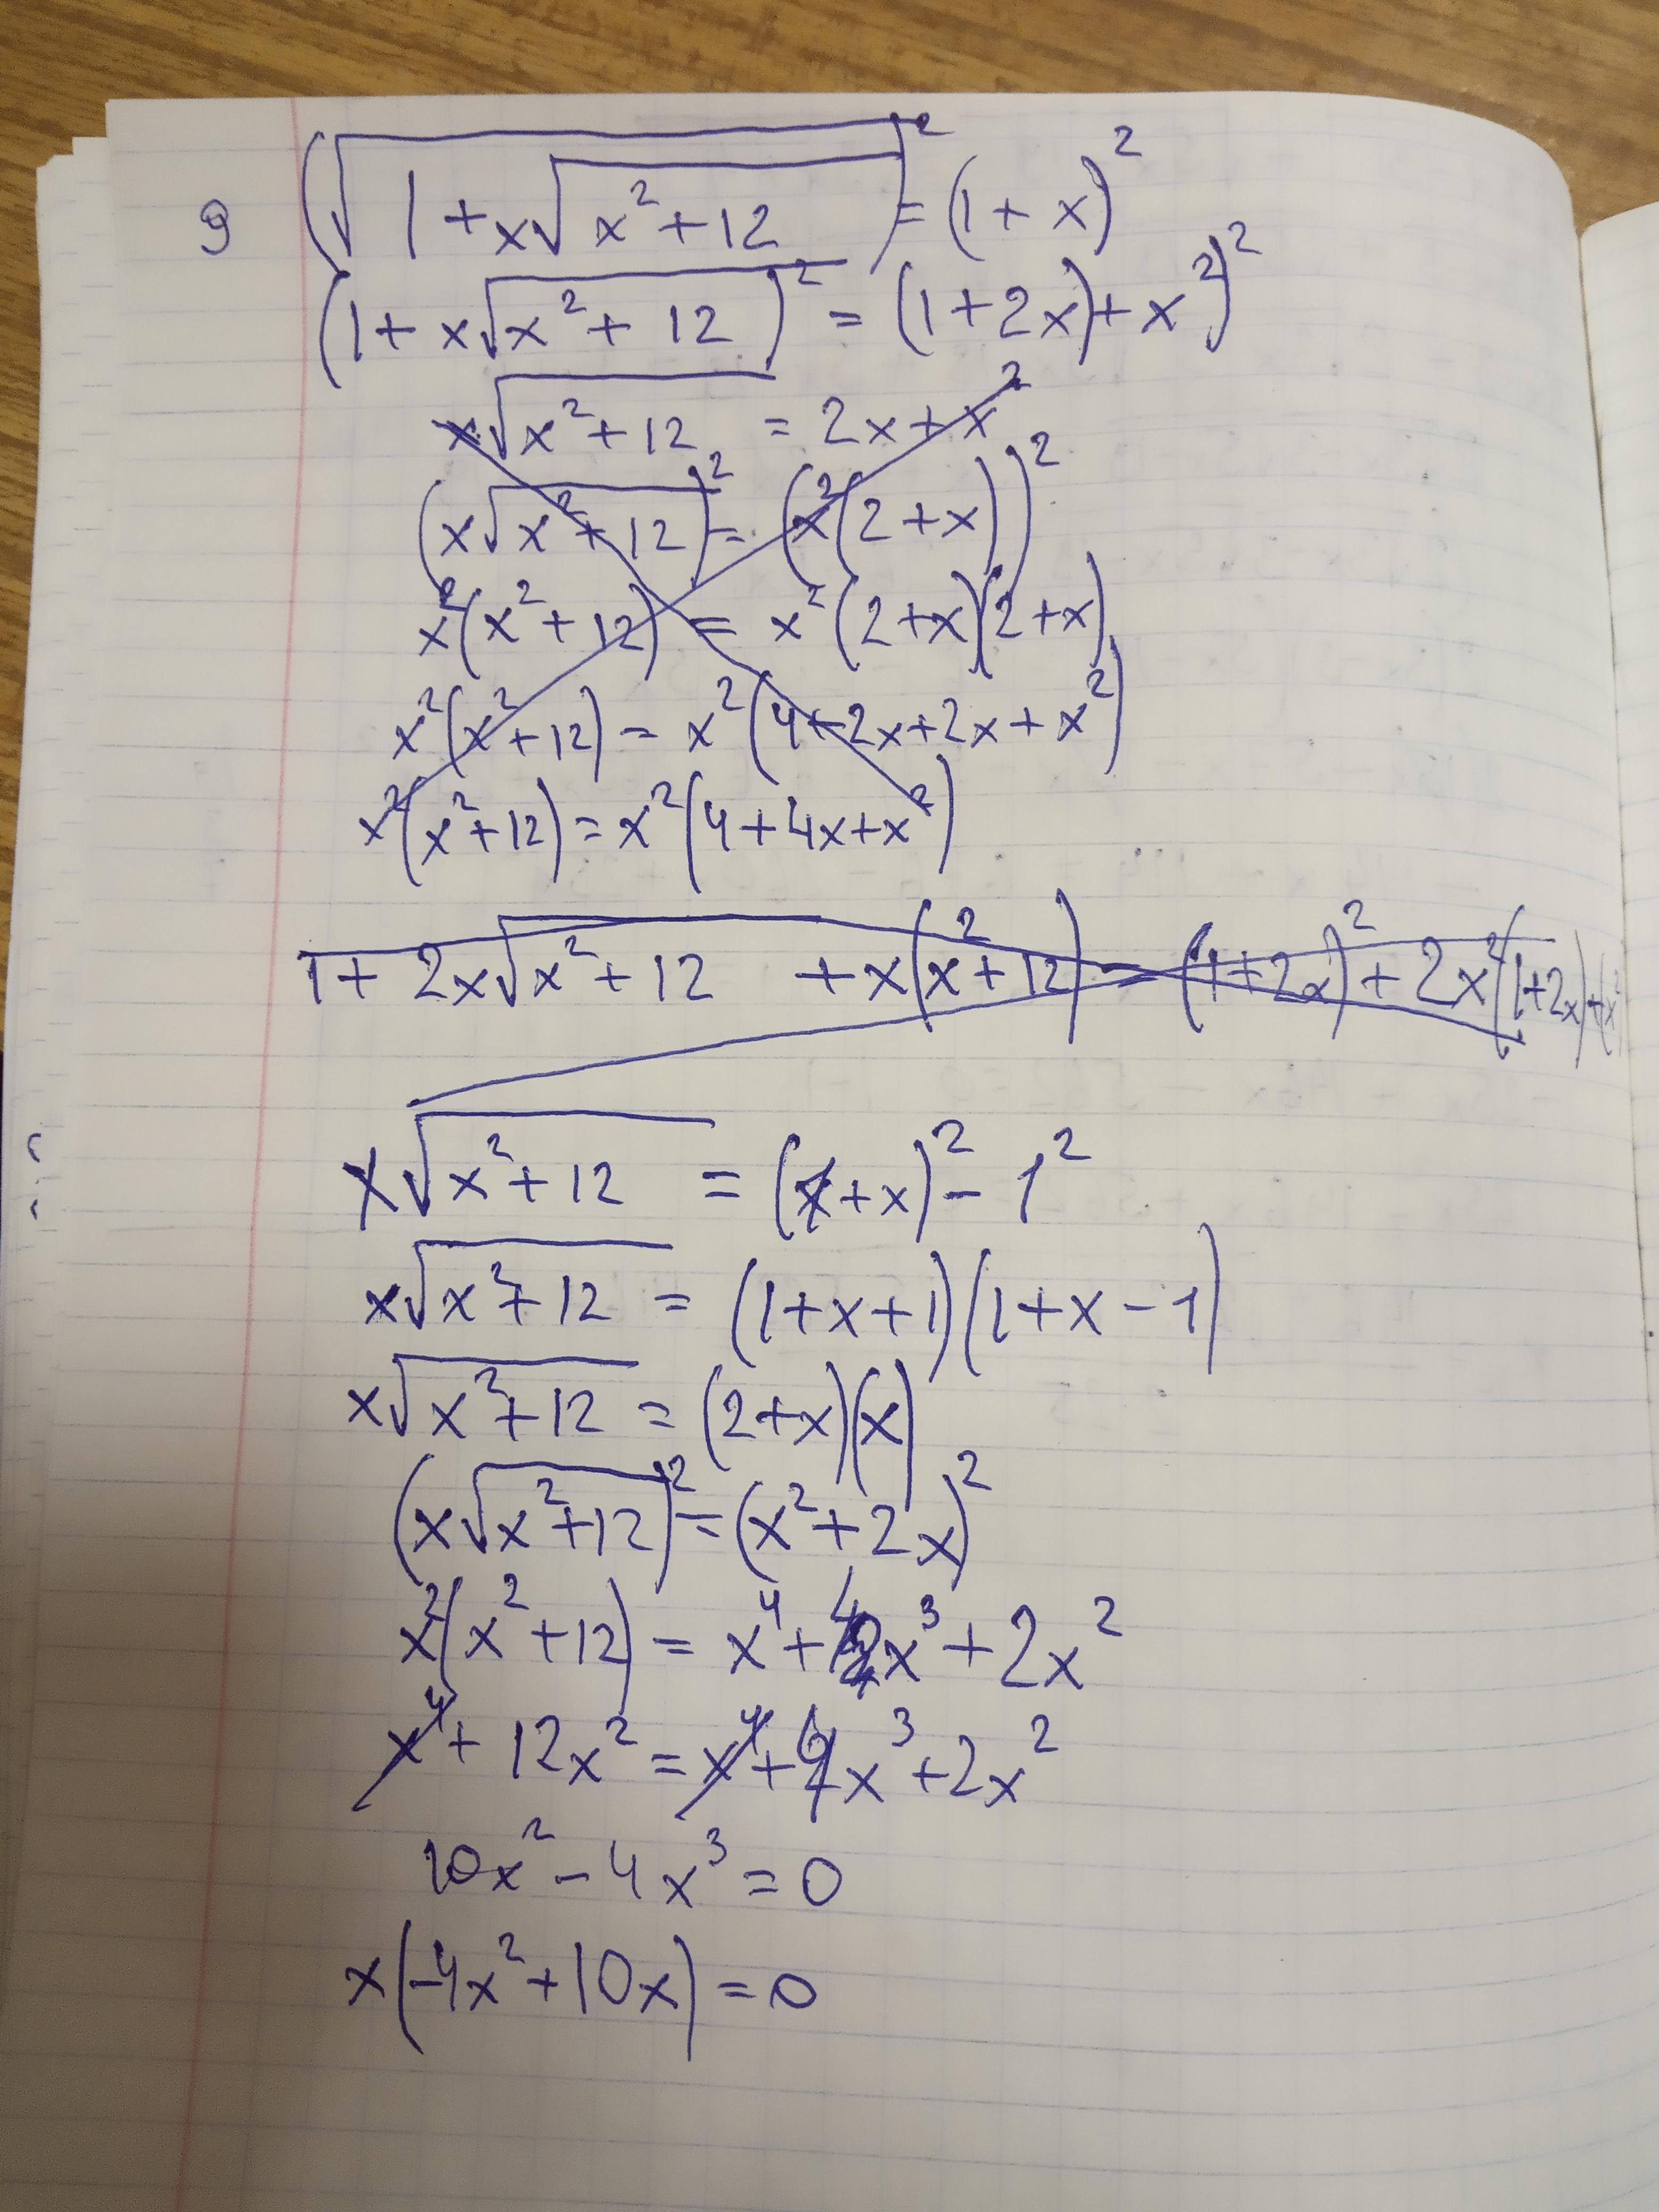 9 (√(1+x√(x²+12)))² = (1+x)²
(1+x√(x²+12))² = (1+2x)+x²)²
x√(x²+12) = 2x+x²
(x√(x²+12))² = (x²(2+x))²
x²(x²+12) = x²(2+x)(2+x)
x²(x²+12) = x²(4+2x+2x+x²)
x²(x²+12) = x²(4+4x+x²)
1+2x√(x²+12) +x(x²+12) = (1+2x)²+2x²(1+2x)+
x√(x²+12) = (1+x)²-1²
x√(x²+12) = (1+x+1)(1+x-1)
x√(x²+12) = (2+x)(x)
(x√(x²+12))² = (x²+2x)²
x²(x²+12) = x⁴+4x³+2x²
x⁴+12x² = x⁴+4x³+2x²
10x²-4x³=0
x(-4x²+10x)=0